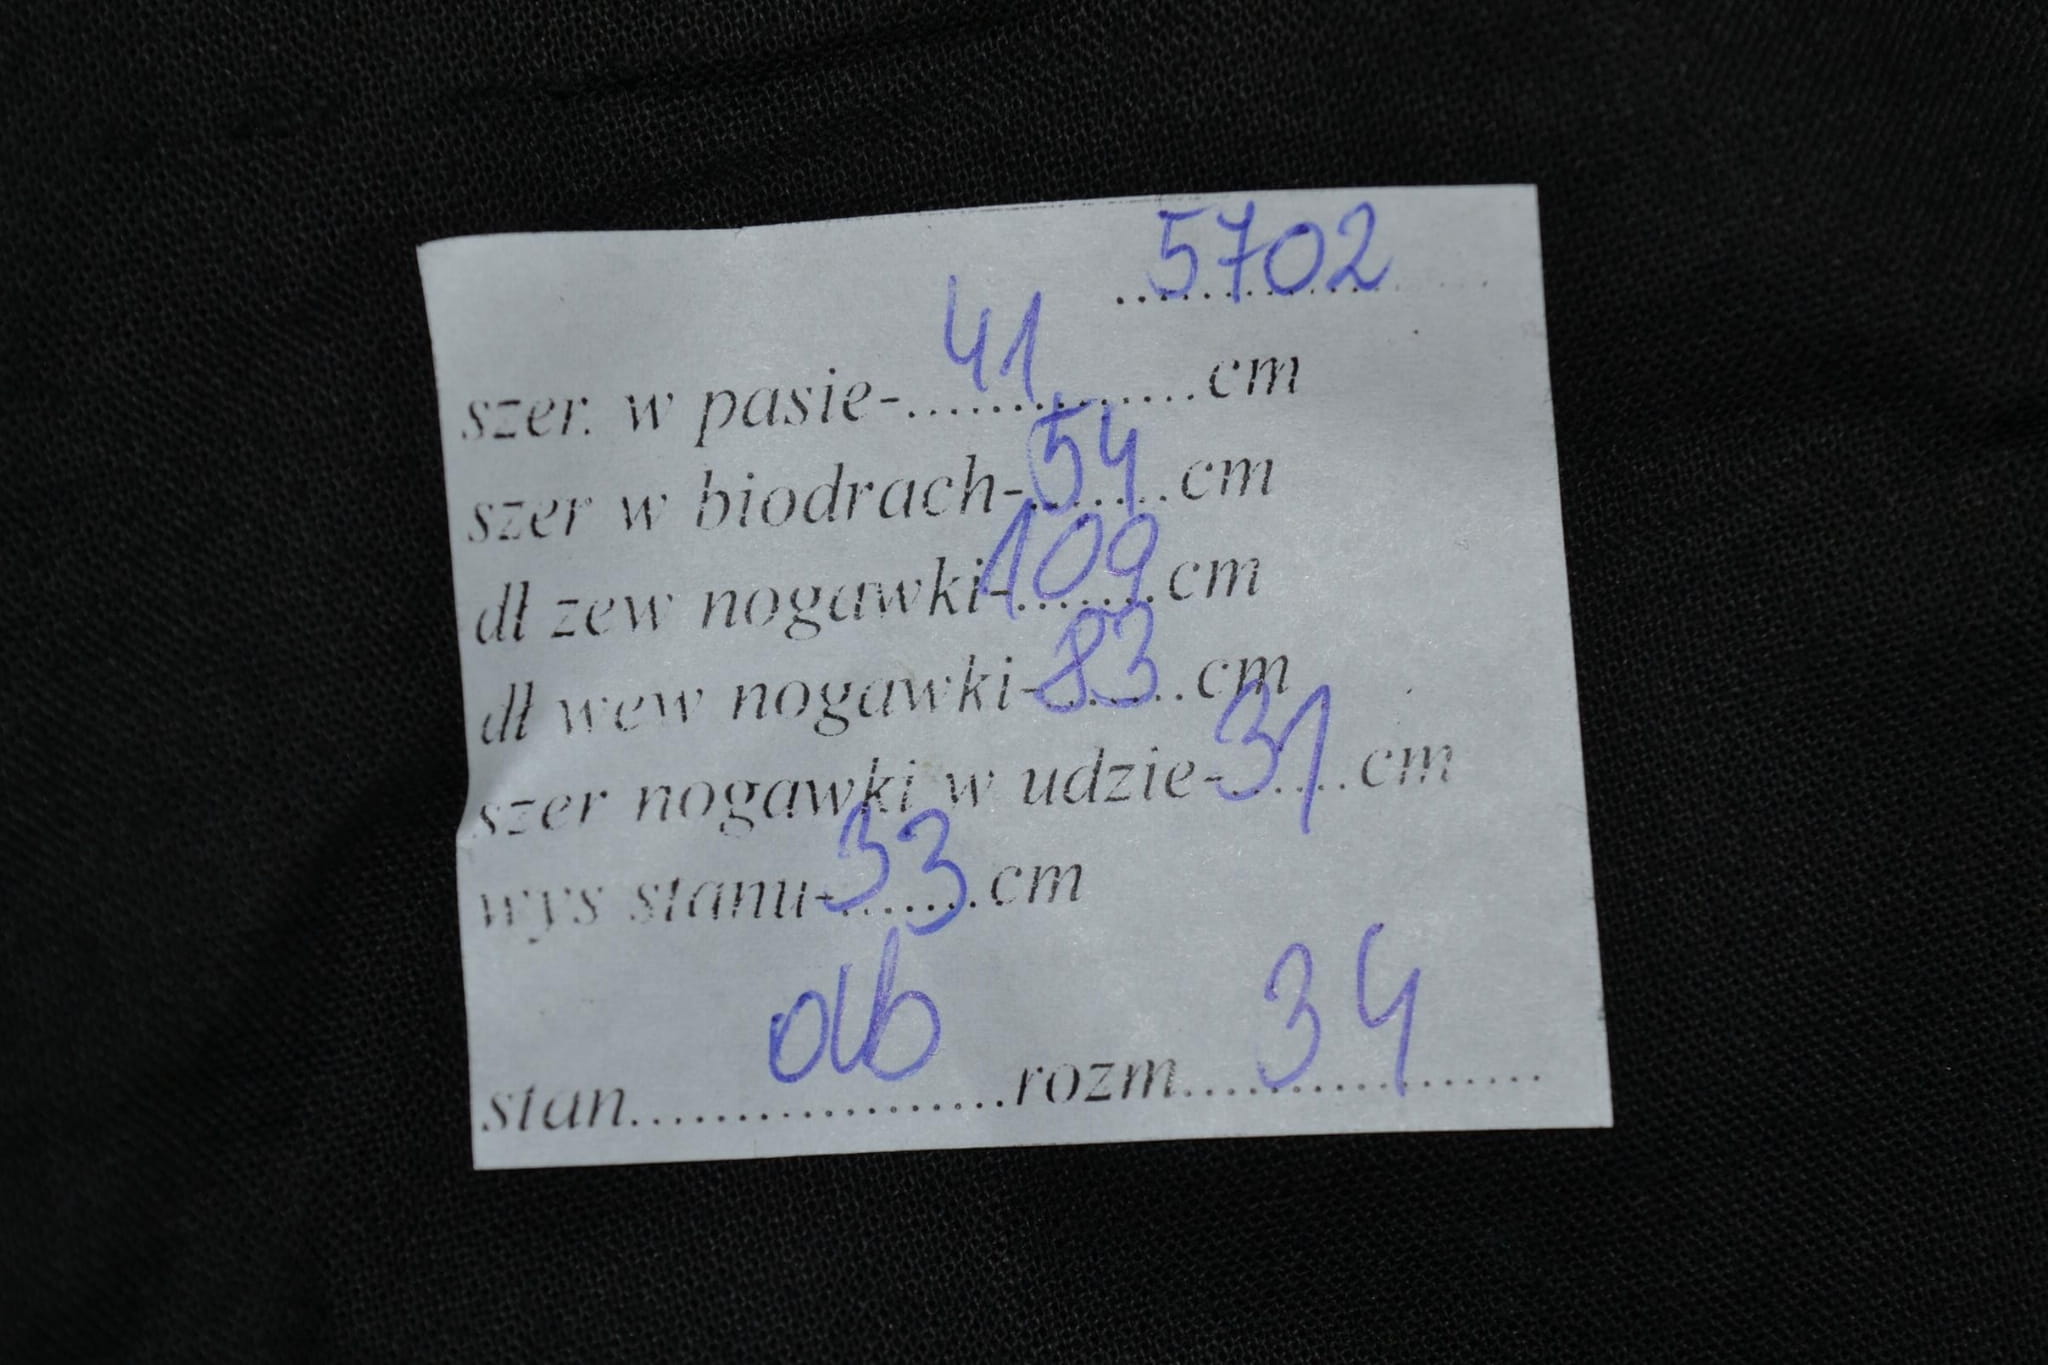 5702
szer. w pasie-41cm
szer w biodrach-54cm
dł zew nogawki-109cm
dł wew nogawki-83cm
szer nogawki w udzie-31cm
wys stanu-33cm
stan db rozm 34